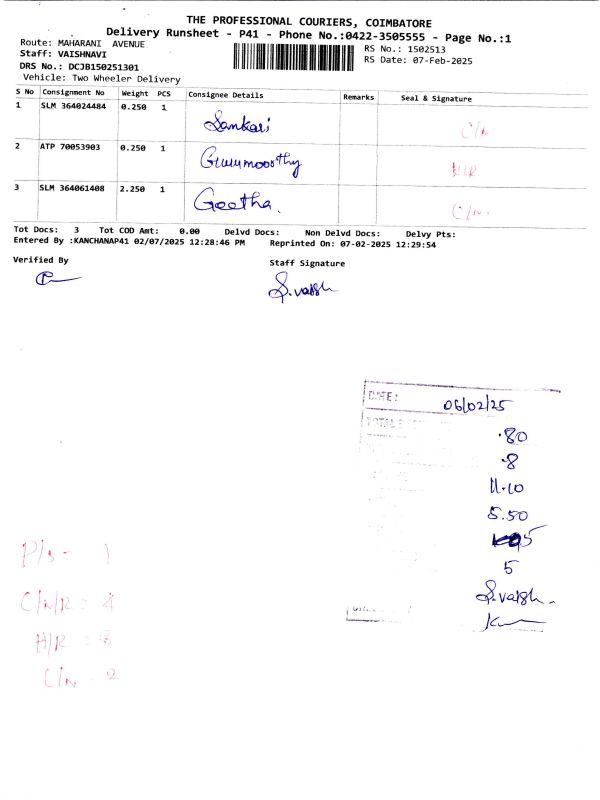 THE PROFESSIONAL COURIERS, COIMBATORE
Delivery Runsheet - P41 - Phone No.:0422-3505555 - Page No.:1
Route: MAHARANI AVENUE
Staff: VAISHNAVI
DRS No.: DCJB150251301
Vehicle: Two Wheeler Delivery
RS No.: 1502513
RS Date: 07-Feb-2025
S No Consignment No Weight PCS Consignee Details Remarks Seal & Signature
1 SLM 364024484 0.250 1 Sankari C/N
2 ATP 70053903 0.250 1 Gurumoorthy H/R
3 SLM 364061408 2.250 1 Geetha. C/N.
Tot Docs: 3 Tot COD Amt: 0.00 Delvd Docs: Non Delvd Docs: Delvy Pts:
Entered By :KANCHANAP41 02/07/2025 12:28:46 PM Reprinted On: 07-02-2025 12:29:54
Verified By
Staff Signature
S.vaish
DATE: 06/02/25
.80
.8
11.10
5.50
5
5
S.vaish.
P/s - 1
C/N/R : 4
H/R : 3
C/N - 2